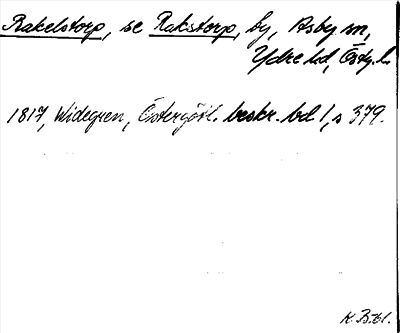 Rakelstorp, se Rakstorp, by, Asby sn,
Ydre hd, Östg.l.
1817, Widegren, Östergötl. beskr. bd 1, s 379.
K. B.bl.